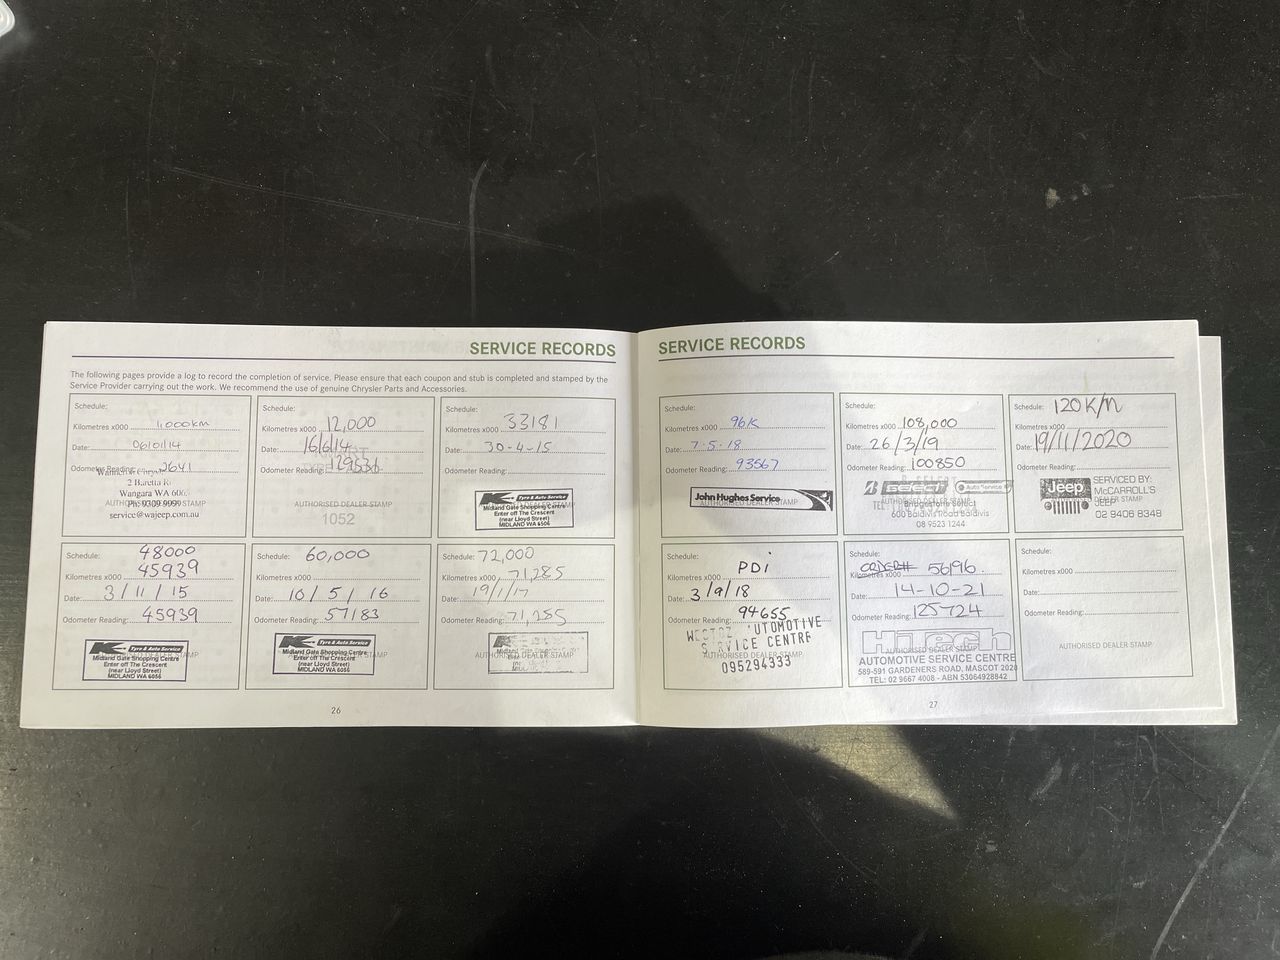 SERVICE RECORDS
The following pages provide a log to record the completion of service. Please ensure that each coupon and stub is completed and stamped by the
Service Provider carrying out the work. We recommend the use of genuine Chrysler Parts and Accessories.
Schedule:
Kilometres x000 1,000km
Date:
Odometer Reading: 2641
2 Baretta
Wangara WA
Ph: 9309 9999
service@wajeep.com.au
AUTHORISED DEALER STAMP
Schedule:
Kilometres x000 12,000
Date: 16/6/14
Odometer Reading:
AUTHORISED DEALER STAMP
1052
Schedule:
Kilometres x000 33181
Date: 30-4-15
Odometer Reading:
K Tyre & Auto Service
Midland Gate Shopping Centre
Enter off The Crescent
(near Lloyd Street)
MIDLAND WA 6056
Schedule: 48000
Kilometres x000 45939
Date: 3/11/15
Odometer Reading: 45939
K Tyre & Auto Service
Midland Gate Shopping Centre
Enter off The Crescent
(near Lloyd Street)
MIDLAND WA 6056
Schedule: 60,000
Kilometres x000
Date: 10/5/16
Odometer Reading: 57183
K Tyre & Auto Service
Midland Gate Shopping Centre
Enter off The Crescent
(near Lloyd Street)
MIDLAND WA 6056
Schedule: 72,000
Kilometres x000 71,285
Date: 19/1/17
Odometer Reading: 71,285
AUTHORISED DEALER STAMP
26
SERVICE RECORDS
Schedule:
Kilometres x000 96K
Date: 7-5-18
Odometer Reading: 93567
John Hughes Service
AUTHORISED DEALER STAMP
Schedule:
Kilometres x000 108,000
Date: 26/3/19
Odometer Reading: 100850
B SELECT Auto Service
AUTHORISED DEALER STAMP
Bridgestone Select
600 Baldivis Road Baldivis
08 9523 1244
Schedule: 120K/M
Kilometres x000
Date: 19/11/2020
Odometer Reading:
Jeep
SERVICED BY:
McCARROLL'S
JEEP
02 9406 8348
Schedule:
Kilometres x000 PDi
Date: 3/9/18
Odometer Reading: 94655
AUTOMOTIVE
SERVICE CENTRE
AUTHORISED DEALER STAMP
095294333
Schedule:
Kilometres x000 56196
Date: 14-10-21
Odometer Reading: 125724
Hitech
AUTHORISED DEALER STAMP
AUTOMOTIVE SERVICE CENTRE
589-591 GARDENERS ROAD, MASCOT 2020
TEL: 02 9667 4008 - ABN 53064928842
Schedule:
Kilometres x000
Date:
Odometer Reading:
AUTHORISED DEALER STAMP
27